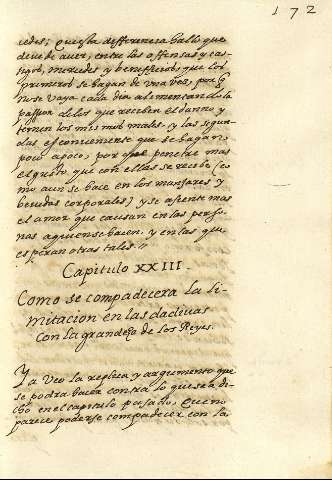 172
cedes; Que esta differencia hallo que
deue de auer, entre las offensas y cas-
tigos, mercedes y beneficios que los
primeros se hagan de una vez, por q̃
no se vaya cada dia alimentando la
passion de los que reciben el danno y
temen los mismos males. y las segun-
das es conueniente que se hagan
poco apoco, por que penetre mas
el gusto, que con ellas se recibe (co
mo aun se hace en los manjares y
beuidas corporales) y se assiente mas
el amor que causan en las perso-
nas aquien se hacen. y en las que
esperan otras tales.
Capitulo XXIII.
Como se compadecera la li-
mitacion en las dadiuas
con la grandeza de los Reyes.
Ya Veo la replica y argumento que
se podra hacer contra lo que se a di-
cho en el capitulo pasado, Que no
parece poderse compadecer con la